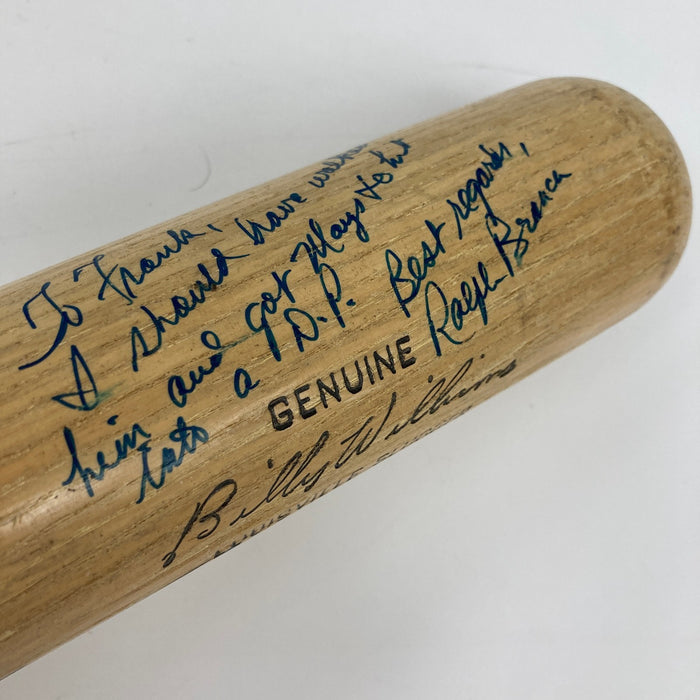 To Frank,
I should have walked
him and got Mays to hit
into a D.P. Best regards,
Ralph Branca
GENUINE
Billy Williams
LOUISVILLE